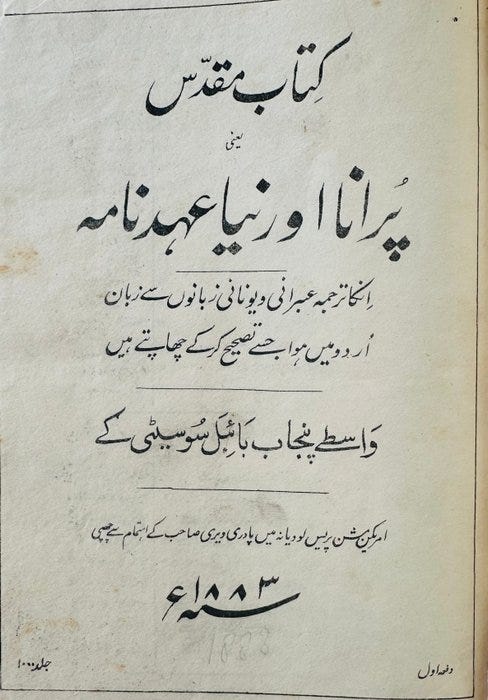 کتاب مقدّس
یعنی
پُرانا اور نیا عہد نامہ
اِنکا ترجمہ عبرانی و یونانی زبانوں سے زبان
اُردو میں ہوا جسے تصحیح کر کے چھاپتے ہیں
وَاسطے پنجاب بَائبَل سُوسَیٹی کے
امریکن مشن پریس لودیانہ میں پادری ویری صاحب کے اہتمام سے چھپی
سنہ ۱۸۸۳ ع
1883
دفعہ اول
جلد ۱۰۰۰